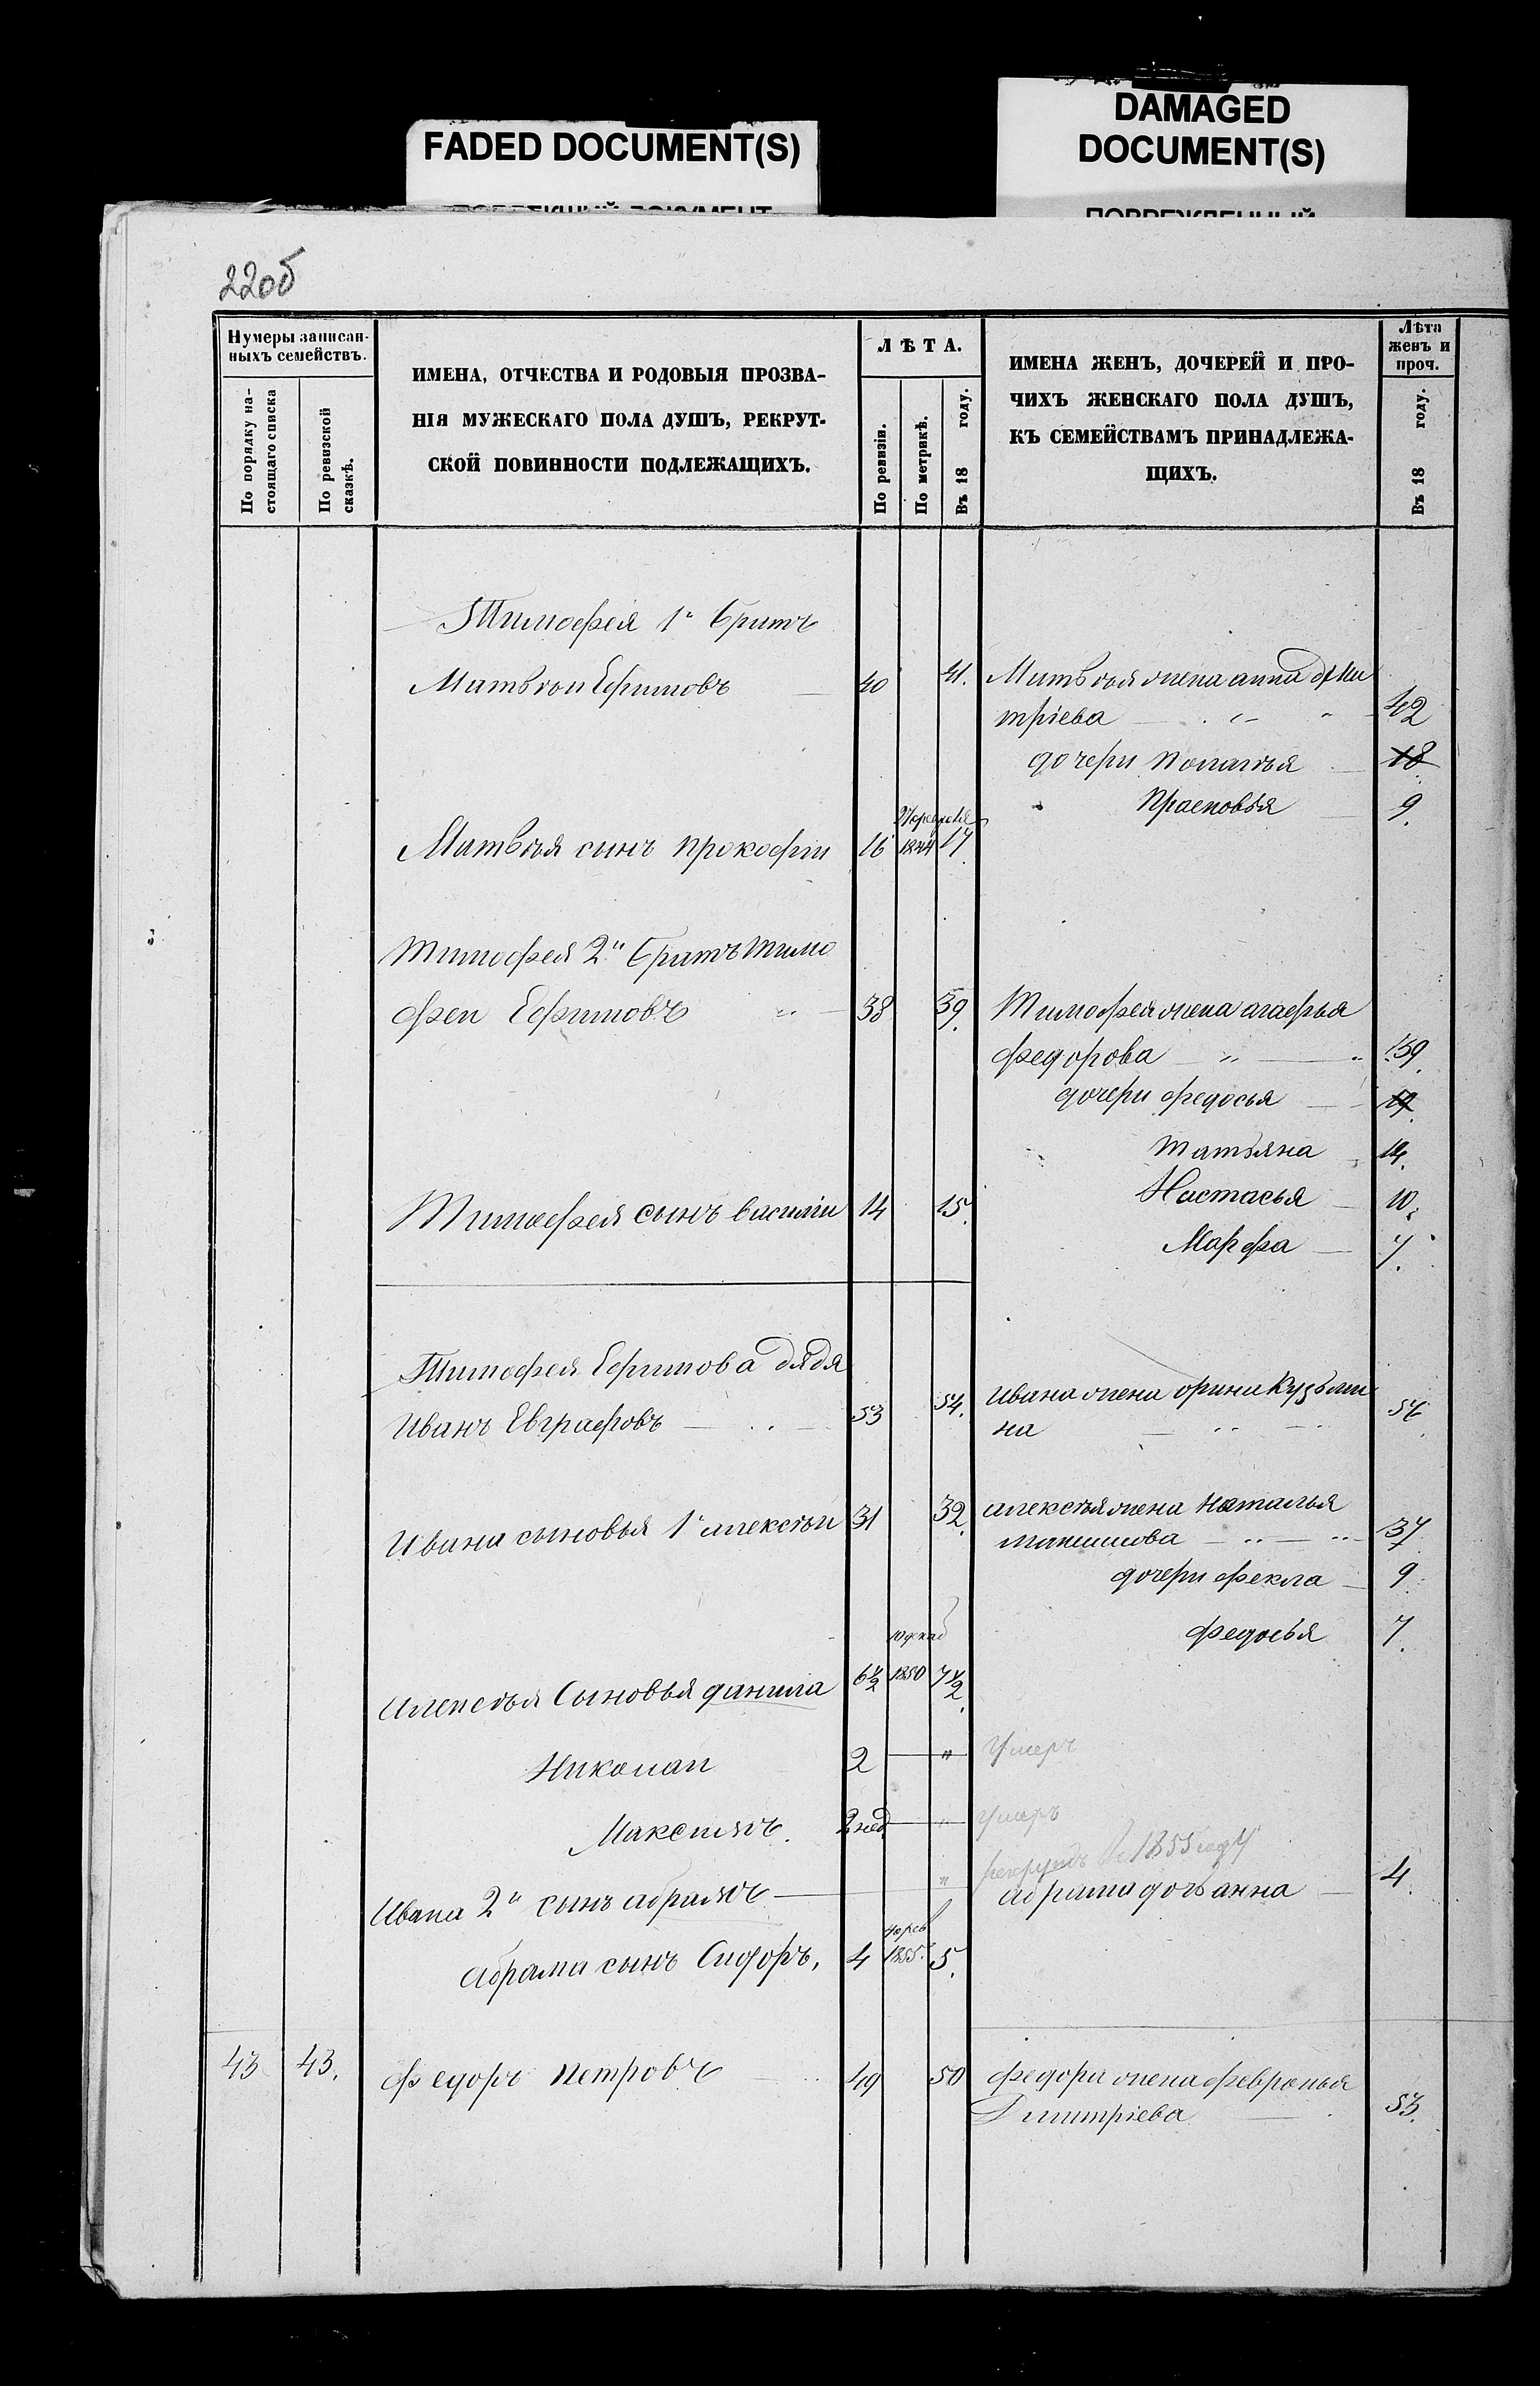 FADED DOCUMENT(S)
DAMAGED
DOCUMENT(S)
22об
Нумеры записан-
ныхъ семействъ.
По порядку на-
стоящаго списка
По ревизской
сказкѣ.
ИМЕНА, ОТЧЕСТВА И РОДОВЫЯ ПРОЗВА-
НІЯ МУЖЕСКАГО ПОЛА ДУШЪ, РЕКРУТ-
СКОЙ ПОВИННОСТИ ПОДЛЕЖАЩИХЪ.
ЛѢТА.
По ревизіи.
По метрикѣ.
Въ 18 году.
ИМЕНА ЖЕНЪ, ДОЧЕРЕЙ И ПРО-
ЧИХЪ ЖЕНСКАГО ПОЛА ДУШЪ,
КЪ СЕМЕЙСТВАМЪ ПРИНАДЛЕЖА-
ЩИХЪ.
Лѣта
женъ и
проч.
Въ 18 году.
Тимофея 1й братъ
Матвѣй Ефимовъ 40 41. Матвѣя жена анна дми
тріева 42
дочери Пелагѣя 18
Прасковья 9.
Матвѣя сынъ прокофій 16 1844 17.
Тимофея 2й братъ тимо
фей Ефимовъ 38 39. Тимофея жена агафья
федорова 39.
дочери федосья 19.
Татьяна 14.
Настасья 10.
Тимофея сынъ василій 14 15.
Марфа 7.
Тимофея Ефимова дядя
Иванъ Евграфовъ 53 54. Ивана жена орина Кузьми
на 56
Ивана сыновья 1й алексѣй 31 32. алексѣя жена наталья
максимова 37
дочери фекла 9
федосья 7.
10 декаб
Алексѣя Сыновья данила 6½ 1850 7½.
Николай 2 " Умеръ
Максимъ. 2 нед " Умеръ
1855 году
Ивана 2й сынъ абрамъ " абрама дочь анна 4.
абрама сынъ Сидоръ. 4 1855. 5.
43 43. федоръ петровъ 49 50 федора жена февронья
Дмитріева 53.